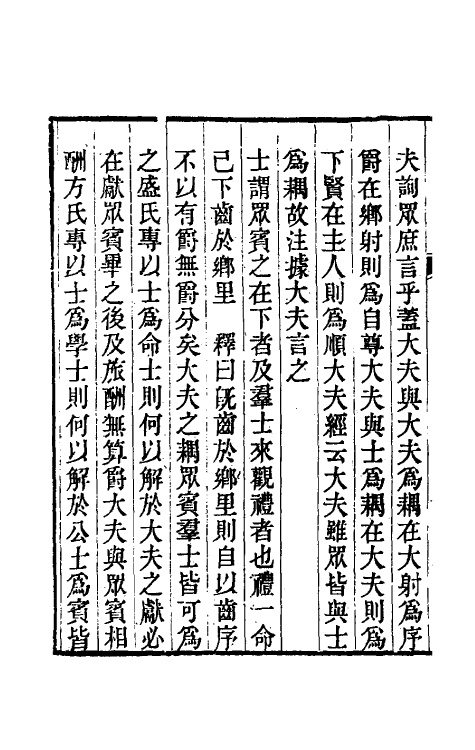 夫詢眾庶言乎蓋大夫與大夫為耦在大射為序
爵在鄉射則為自尊大夫與士為耦在大夫則為
下賢在主人則為順大夫經云大夫雖眾皆與士
為耦故注據大夫言之
士謂眾賓之在下者及羣士來觀禮者也禮一命
己下齒於鄉里　釋曰旣齒於鄉里則自以齒序
不以有爵無爵分矣大夫之耦眾賓羣士皆可為
之盛氏專以士為命士則何以解於大夫之獻必
在獻眾賓畢之後及旅酬無算爵大夫與眾賓相
酬方氏專以士為學士則何以解於公士為賓皆